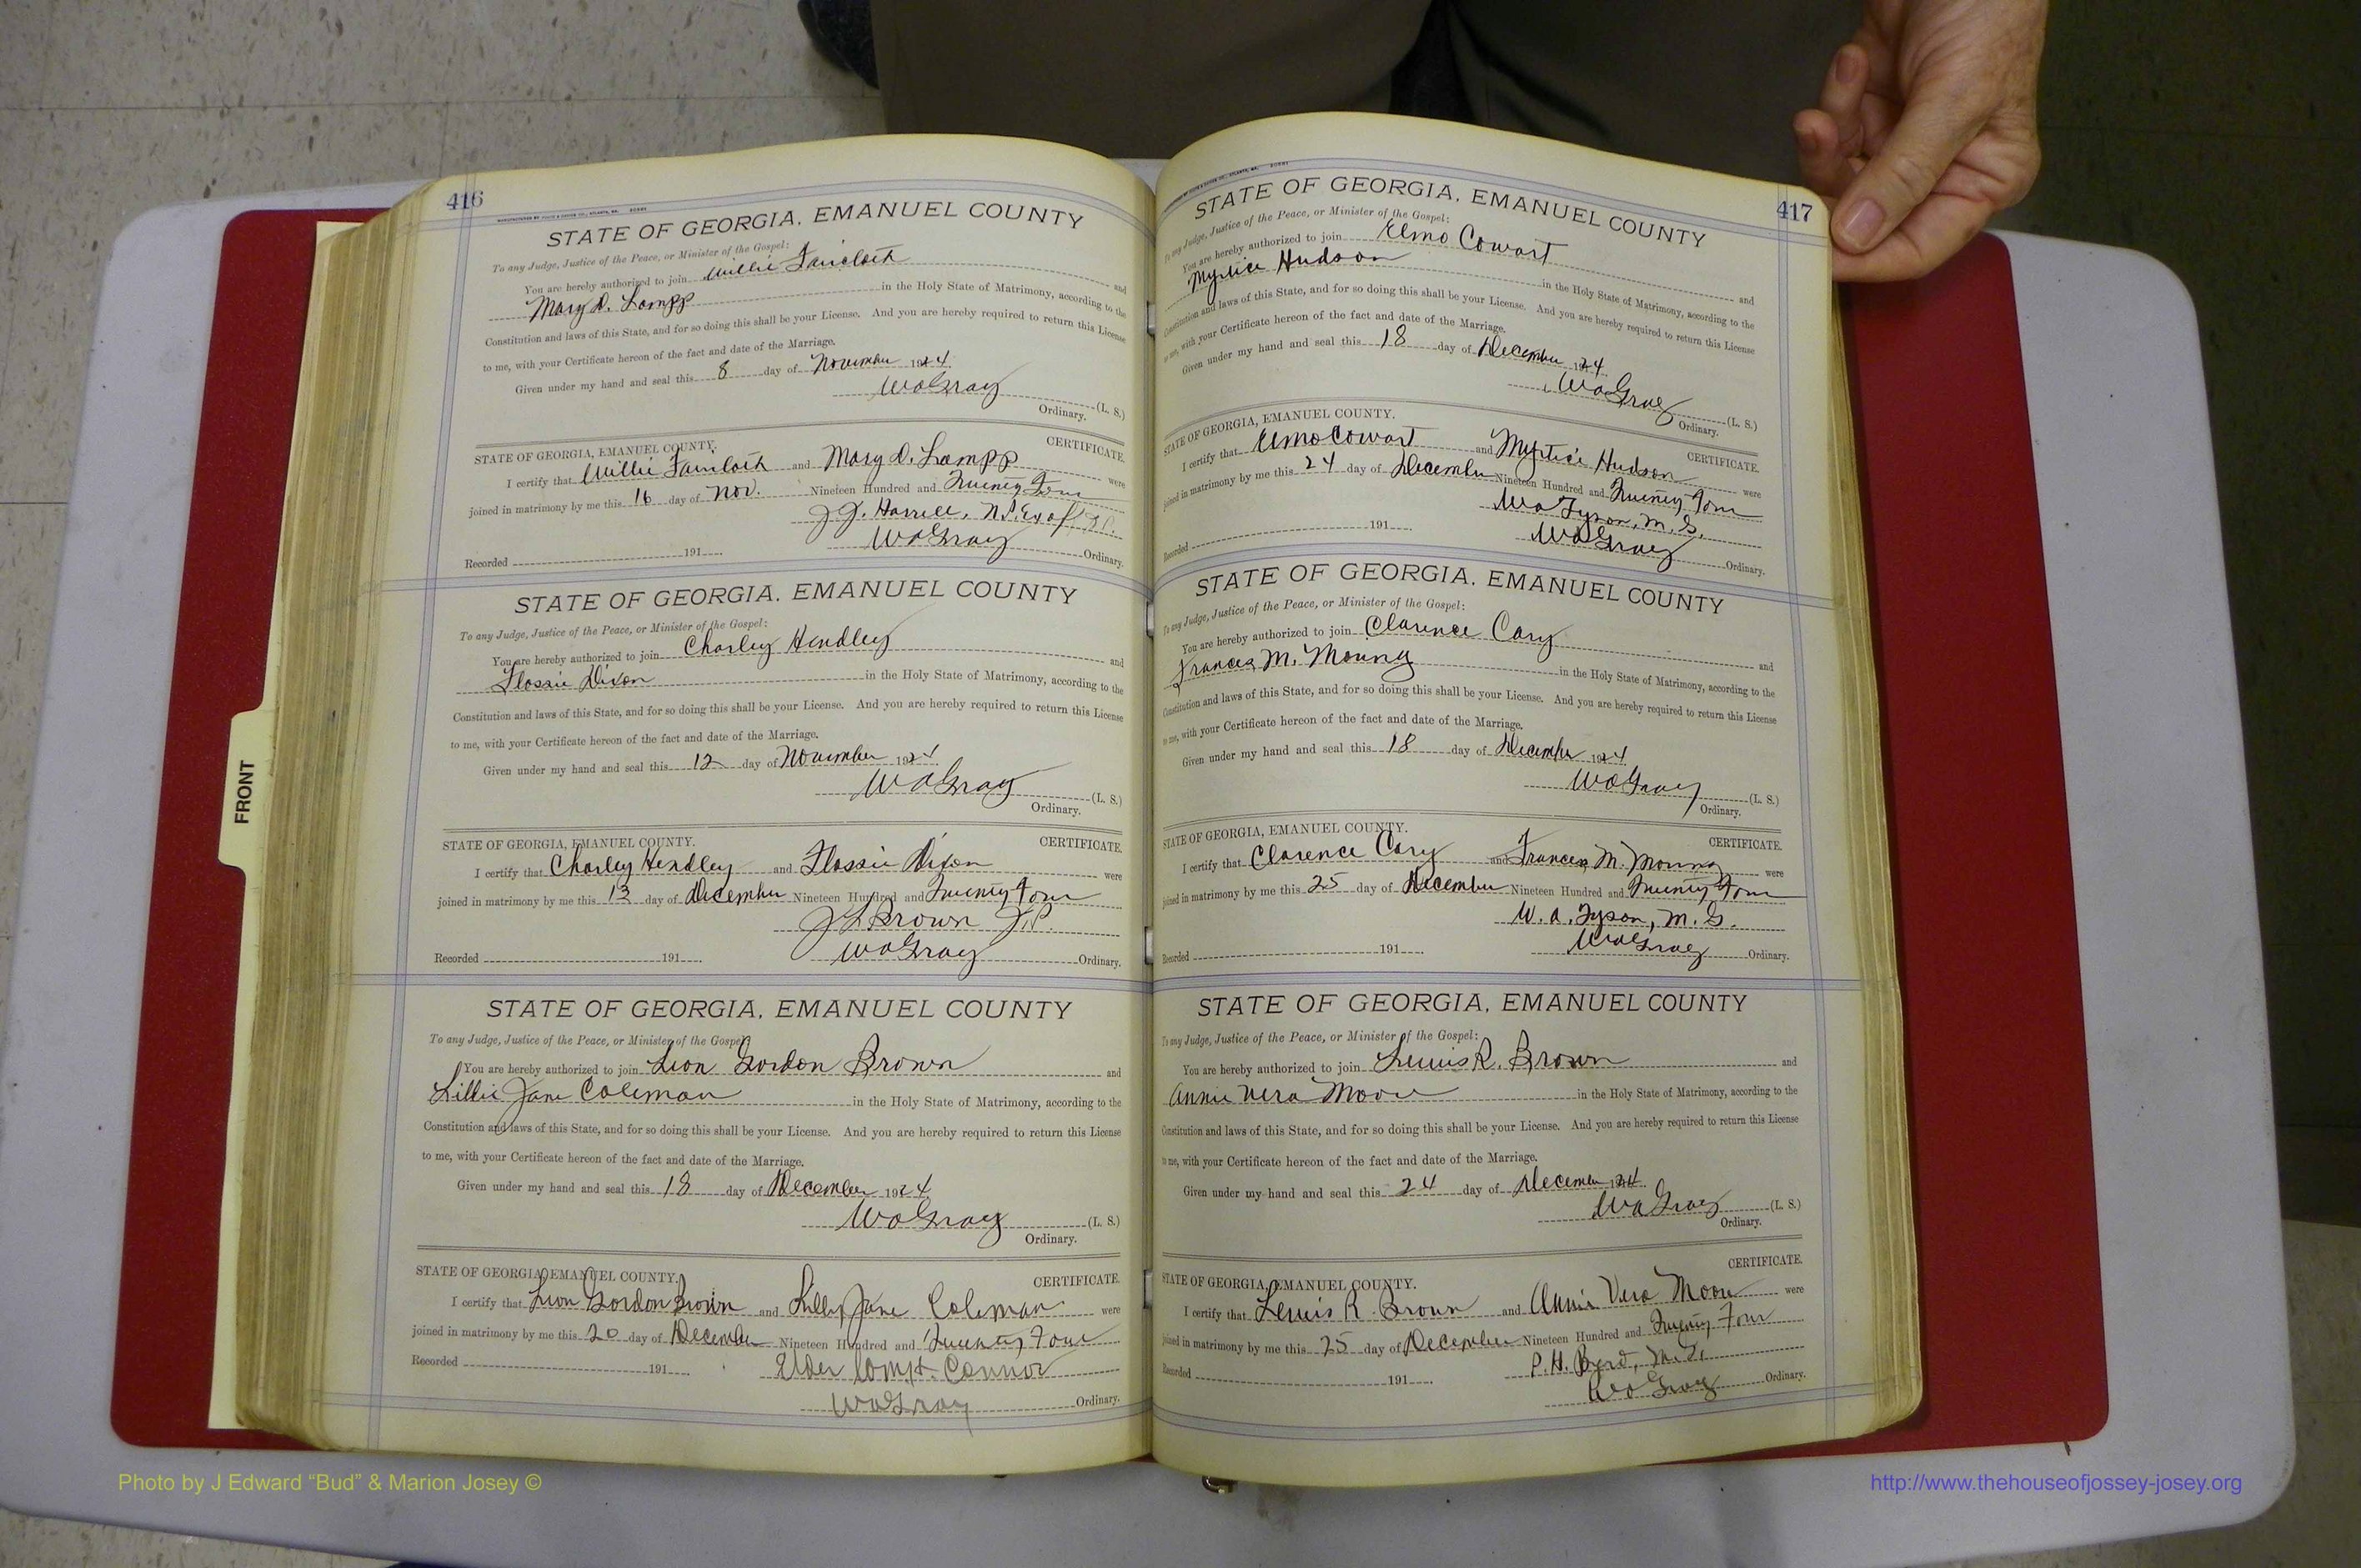 416
STATE OF GEORGIA, EMANUEL COUNTY
To any Judge, Justice of the Peace, or Minister of the Gospel:
You are hereby authorized to join Willie Faircloth and
Mary D. Lampp in the Holy State of Matrimony, according to the
Constitution and laws of this State, and for so doing this shall be your License. And you are hereby required to return this License
to me, with your Certificate hereon of the fact and date of the Marriage.
Given under my hand and seal this 8 day of November 1924
WOGray (L. S.)
Ordinary.
STATE OF GEORGIA, EMANUEL COUNTY. CERTIFICATE.
I certify that Willie Faircloth and Mary D. Lampp were
joined in matrimony by me this 16 day of Nov. Nineteen Hundred and Twenty Four
J.J. Harrell, N.P. Ex of J.P.
Recorded 191 WOGray Ordinary.
STATE OF GEORGIA, EMANUEL COUNTY
To any Judge, Justice of the Peace, or Minister of the Gospel:
You are hereby authorized to join Charley Hendley and
Flossie Dixon in the Holy State of Matrimony, according to the
Constitution and laws of this State, and for so doing this shall be your License. And you are hereby required to return this License
to me, with your Certificate hereon of the fact and date of the Marriage.
Given under my hand and seal this 12 day of November 1924
WOGray (L. S.)
Ordinary.
STATE OF GEORGIA, EMANUEL COUNTY. CERTIFICATE.
I certify that Charley Hendley and Flossie Dixon were
joined in matrimony by me this 13 day of December Nineteen Hundred and Twenty Four
J L Brown J.P.
Recorded 191 WOGray Ordinary.
STATE OF GEORGIA, EMANUEL COUNTY
To any Judge, Justice of the Peace, or Minister of the Gospel
You are hereby authorized to join Leon Gordon Brown and
Lillie Jane Coleman in the Holy State of Matrimony, according to the
Constitution and laws of this State, and for so doing this shall be your License. And you are hereby required to return this License
to me, with your Certificate hereon of the fact and date of the Marriage.
Given under my hand and seal this 18 day of December 1924
WOGray (L. S.)
Ordinary.
STATE OF GEORGIA, EMANUEL COUNTY. CERTIFICATE.
I certify that Leon Gordon Brown and Lilly Jane Coleman were
joined in matrimony by me this 20 day of December Nineteen Hundred and Twenty Four
Recorded 191 Elder Connor
WOGray Ordinary.
417
STATE OF GEORGIA, EMANUEL COUNTY
To any Judge, Justice of the Peace, or Minister of the Gospel:
You are hereby authorized to join Elmo Cowart and
Myrtice Hudson in the Holy State of Matrimony, according to the
Constitution and laws of this State, and for so doing this shall be your License. And you are hereby required to return this License
to me, with your Certificate hereon of the fact and date of the Marriage.
Given under my hand and seal this 18 day of December 1924
WOGray (L. S.)
Ordinary.
STATE OF GEORGIA, EMANUEL COUNTY. CERTIFICATE.
I certify that Elmo Cowart and Myrtice Hudson were
joined in matrimony by me this 24 day of December Nineteen Hundred and Twenty Four
W a Tyson, M. G.
Recorded 191 WOGray Ordinary.
STATE OF GEORGIA, EMANUEL COUNTY
To any Judge, Justice of the Peace, or Minister of the Gospel:
You are hereby authorized to join Clarence Cary and
Frances M. in the Holy State of Matrimony, according to the
Constitution and laws of this State, and for so doing this shall be your License. And you are hereby required to return this License
to me, with your Certificate hereon of the fact and date of the Marriage.
Given under my hand and seal this 18 day of December 1924
WOGray (L. S.)
Ordinary.
STATE OF GEORGIA, EMANUEL COUNTY. CERTIFICATE.
I certify that Clarence Cary and Frances M. were
joined in matrimony by me this 25 day of December Nineteen Hundred and Twenty Four
W. a. Tyson, M. G.
Recorded 191 WOGray Ordinary.
STATE OF GEORGIA, EMANUEL COUNTY
To any Judge, Justice of the Peace, or Minister of the Gospel:
You are hereby authorized to join Lewis R. Brown and
Annie Vera Moore in the Holy State of Matrimony, according to the
Constitution and laws of this State, and for so doing this shall be your License. And you are hereby required to return this License
to me, with your Certificate hereon of the fact and date of the Marriage.
Given under my hand and seal this 24 day of December 1924
WOGray (L. S.)
Ordinary.
STATE OF GEORGIA, EMANUEL COUNTY. CERTIFICATE.
I certify that Lewis R Brown and Annie Vera Moore were
joined in matrimony by me this 25 day of December Nineteen Hundred and Twenty Four
P. H. Byrd, M. G.
Recorded 191 WOGray Ordinary.
FRONT
Photo by J Edward “Bud” & Marion Josey ©
http://www.thehouseofjossey-josey.org